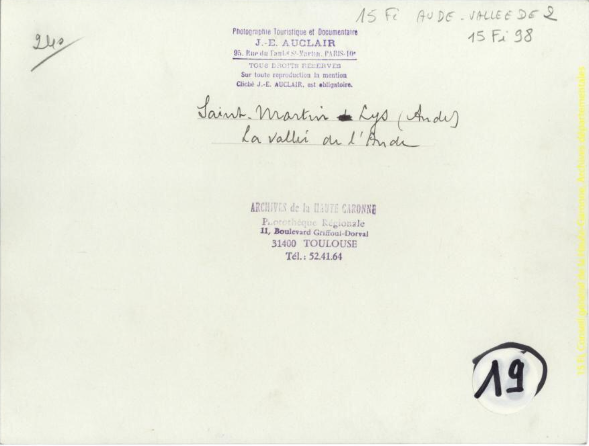 240
15 Fi AUDE-VALLEE DE 2
15 Fi 98
Photographie Touristique et Documentaire
J.-E. AUCLAIR
95, Rue du Faubg St-Martin, PARIS-10e
TOUS DROITS RÉSERVÉS
Sur toute reproduction la mention
Cliché J.-E. AUCLAIR, est obligatoire.
Saint-Martin Lys (Aude)
La vallée de l'Aude
ARCHIVES de la HAUTE GARONNE
Photothèque Régionale
11, Boulevard Griffoul-Dorval
31400 TOULOUSE
Tél.: 52.41.64
19
Conseil général de la Haute-Garonne, Archives départementales